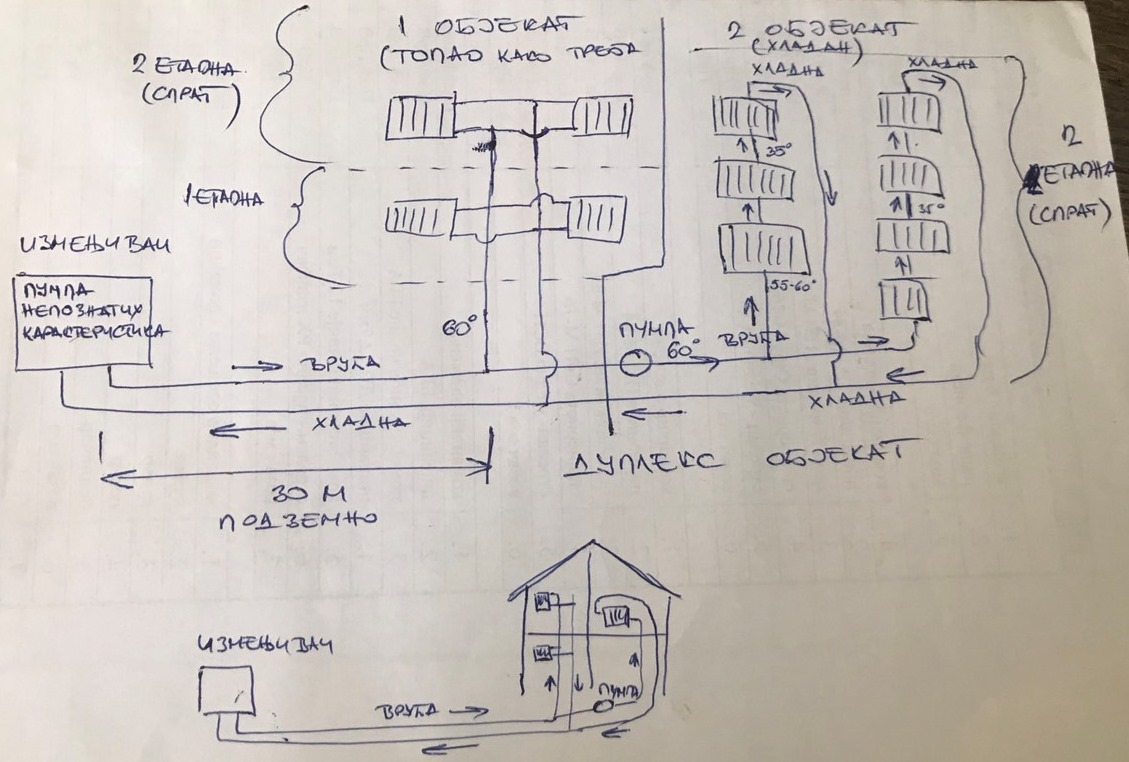 1 ОБЈЕКАТ
(ТОПАО КАКО ТРЕБА
2 ОБЈЕКАТ
(ХЛАДАН)
ХЛАДНА
ХЛАДНА
2 ЕТАЖНА
(СПРАТ)
35°
1 ЕТАЖНА
2
ЕТАЖНА
(СПРАТ)
35°
ИЗМЕЊИВАЧ
ПУМПА
НЕПОЗНАТИХ
КАРАКТЕРИСТИКА
55-60°
60°
ПУМПА
60°
ВРУЋА
ВРУЋА
ХЛАДНА
ХЛАДНА
ДУПЛЕКС ОБЈЕКАТ
30 М
ПОДЗЕМНО
ИЗМЕЊИВАЧ
ПУМПА
ВРУЋА